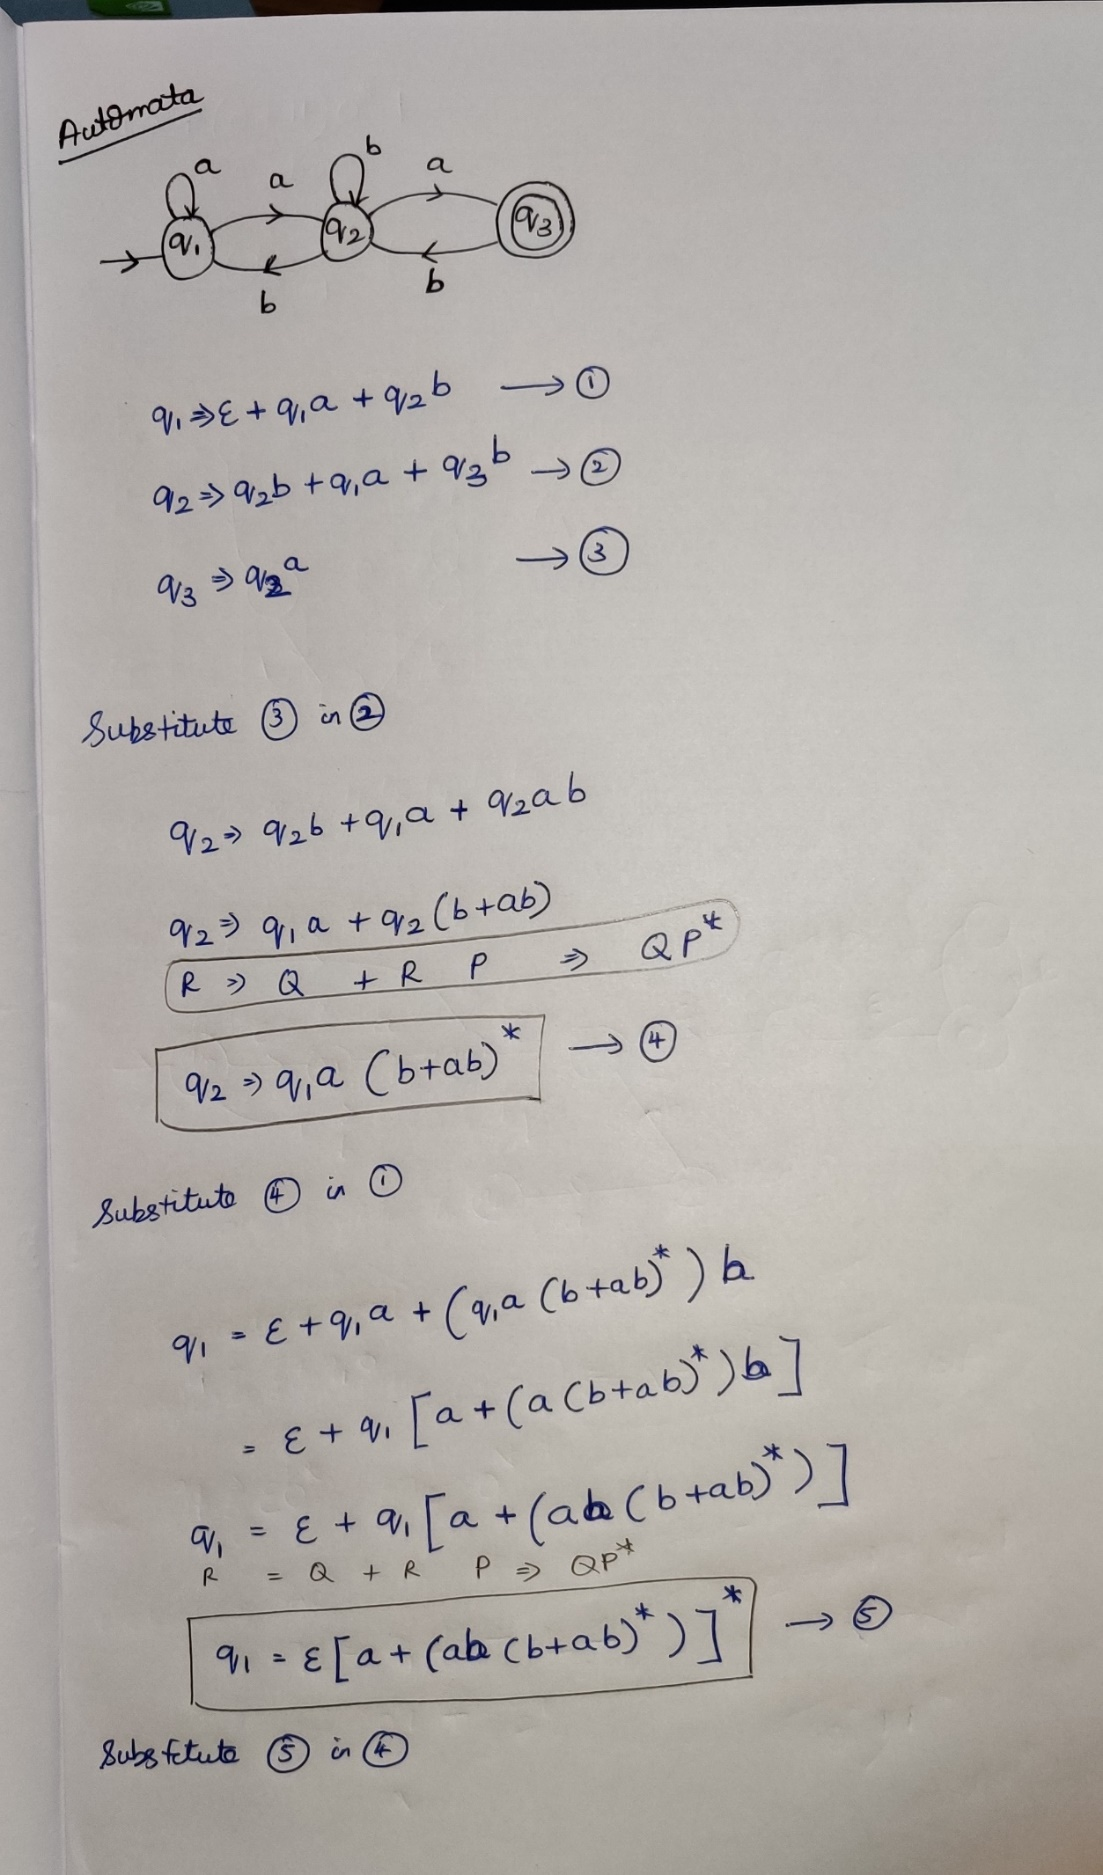 Automata
a a b a
q₁ q₂ q₃
b b
q₁ ⇒ ε + q₁a + q₂b → ①
q₂ ⇒ q₂b + q₁a + q₃b → ②
q₃ ⇒ q₂a → ③
Substitute ③ in ②
q₂ ⇒ q₂b + q₁a + q₂ab
q₂ ⇒ q₁a + q₂(b+ab)
R ⇒ Q + R P ⇒ QP*
q₂ ⇒ q₁a (b+ab)* → ④
Substitute ④ in ①
q₁ = ε + q₁a + (q₁a (b+ab)*) b
= ε + q₁ [a + (a (b+ab)*) b]
q₁ = ε + q₁ [a + (ab (b+ab)*)]
R = Q + R P ⇒ QP*
q₁ = ε [a + (ab (b+ab)*)]* → ⑤
Substitute ⑤ in ④